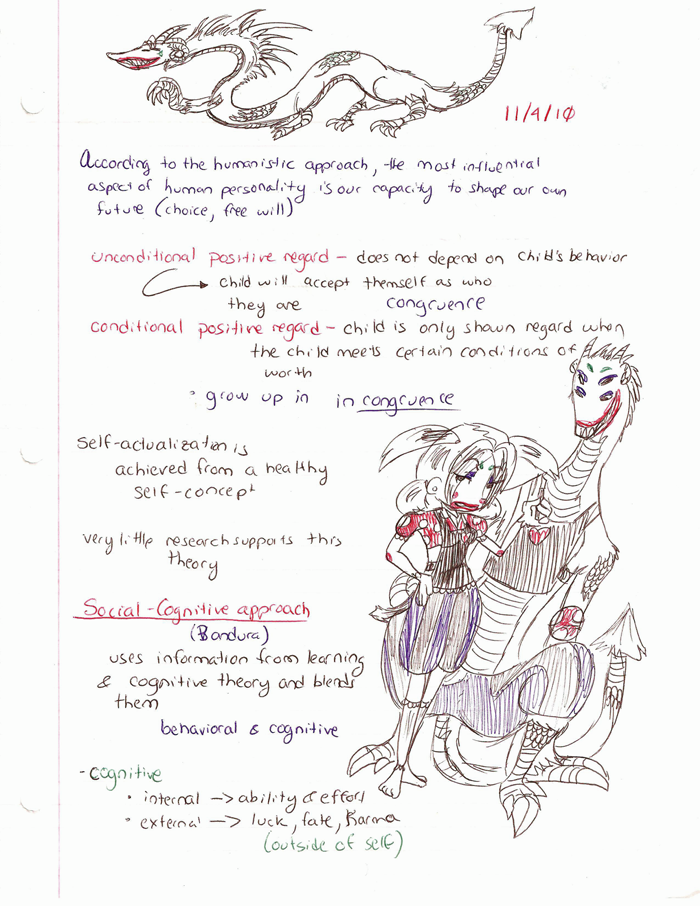 11/4/10
According to the humanistic approach, the most influential
aspect of human personality is our capacity to shape our own
future (choice, free will)
unconditional positive regard - does not depend on child's behavior
child will accept themself as who
they are congruence
conditional positive regard - child is only shown regard when
the child meets certain conditions of
worth
• grow up in incongruence
self-actualization is
achieved from a healthy
self-concept
very little research supports this
theory
Social-Cognitive approach
(Bandura)
uses information from learning
& cognitive theory and blends
them
behavioral & cognitive
- cognitive
• internal -> ability & effort
• external -> luck, fate, Karma
(outside of self)